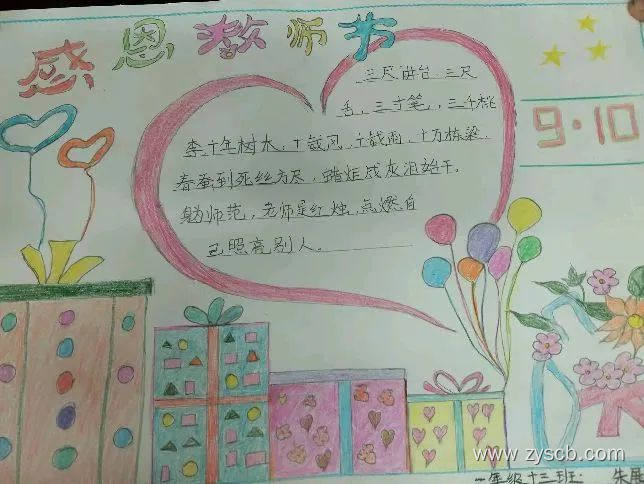 感恩教师节
9·10
三尺讲台.三尺
舌,三寸笔,三千桃
李十年树木,十载风,十载雨,十万栋梁.
春蚕到死丝方尽,蜡炬成灰泪始干.
躬师范,老师是红烛,点燃自
己照亮别人.
一年级十三班.
朱
www.zyscb.com